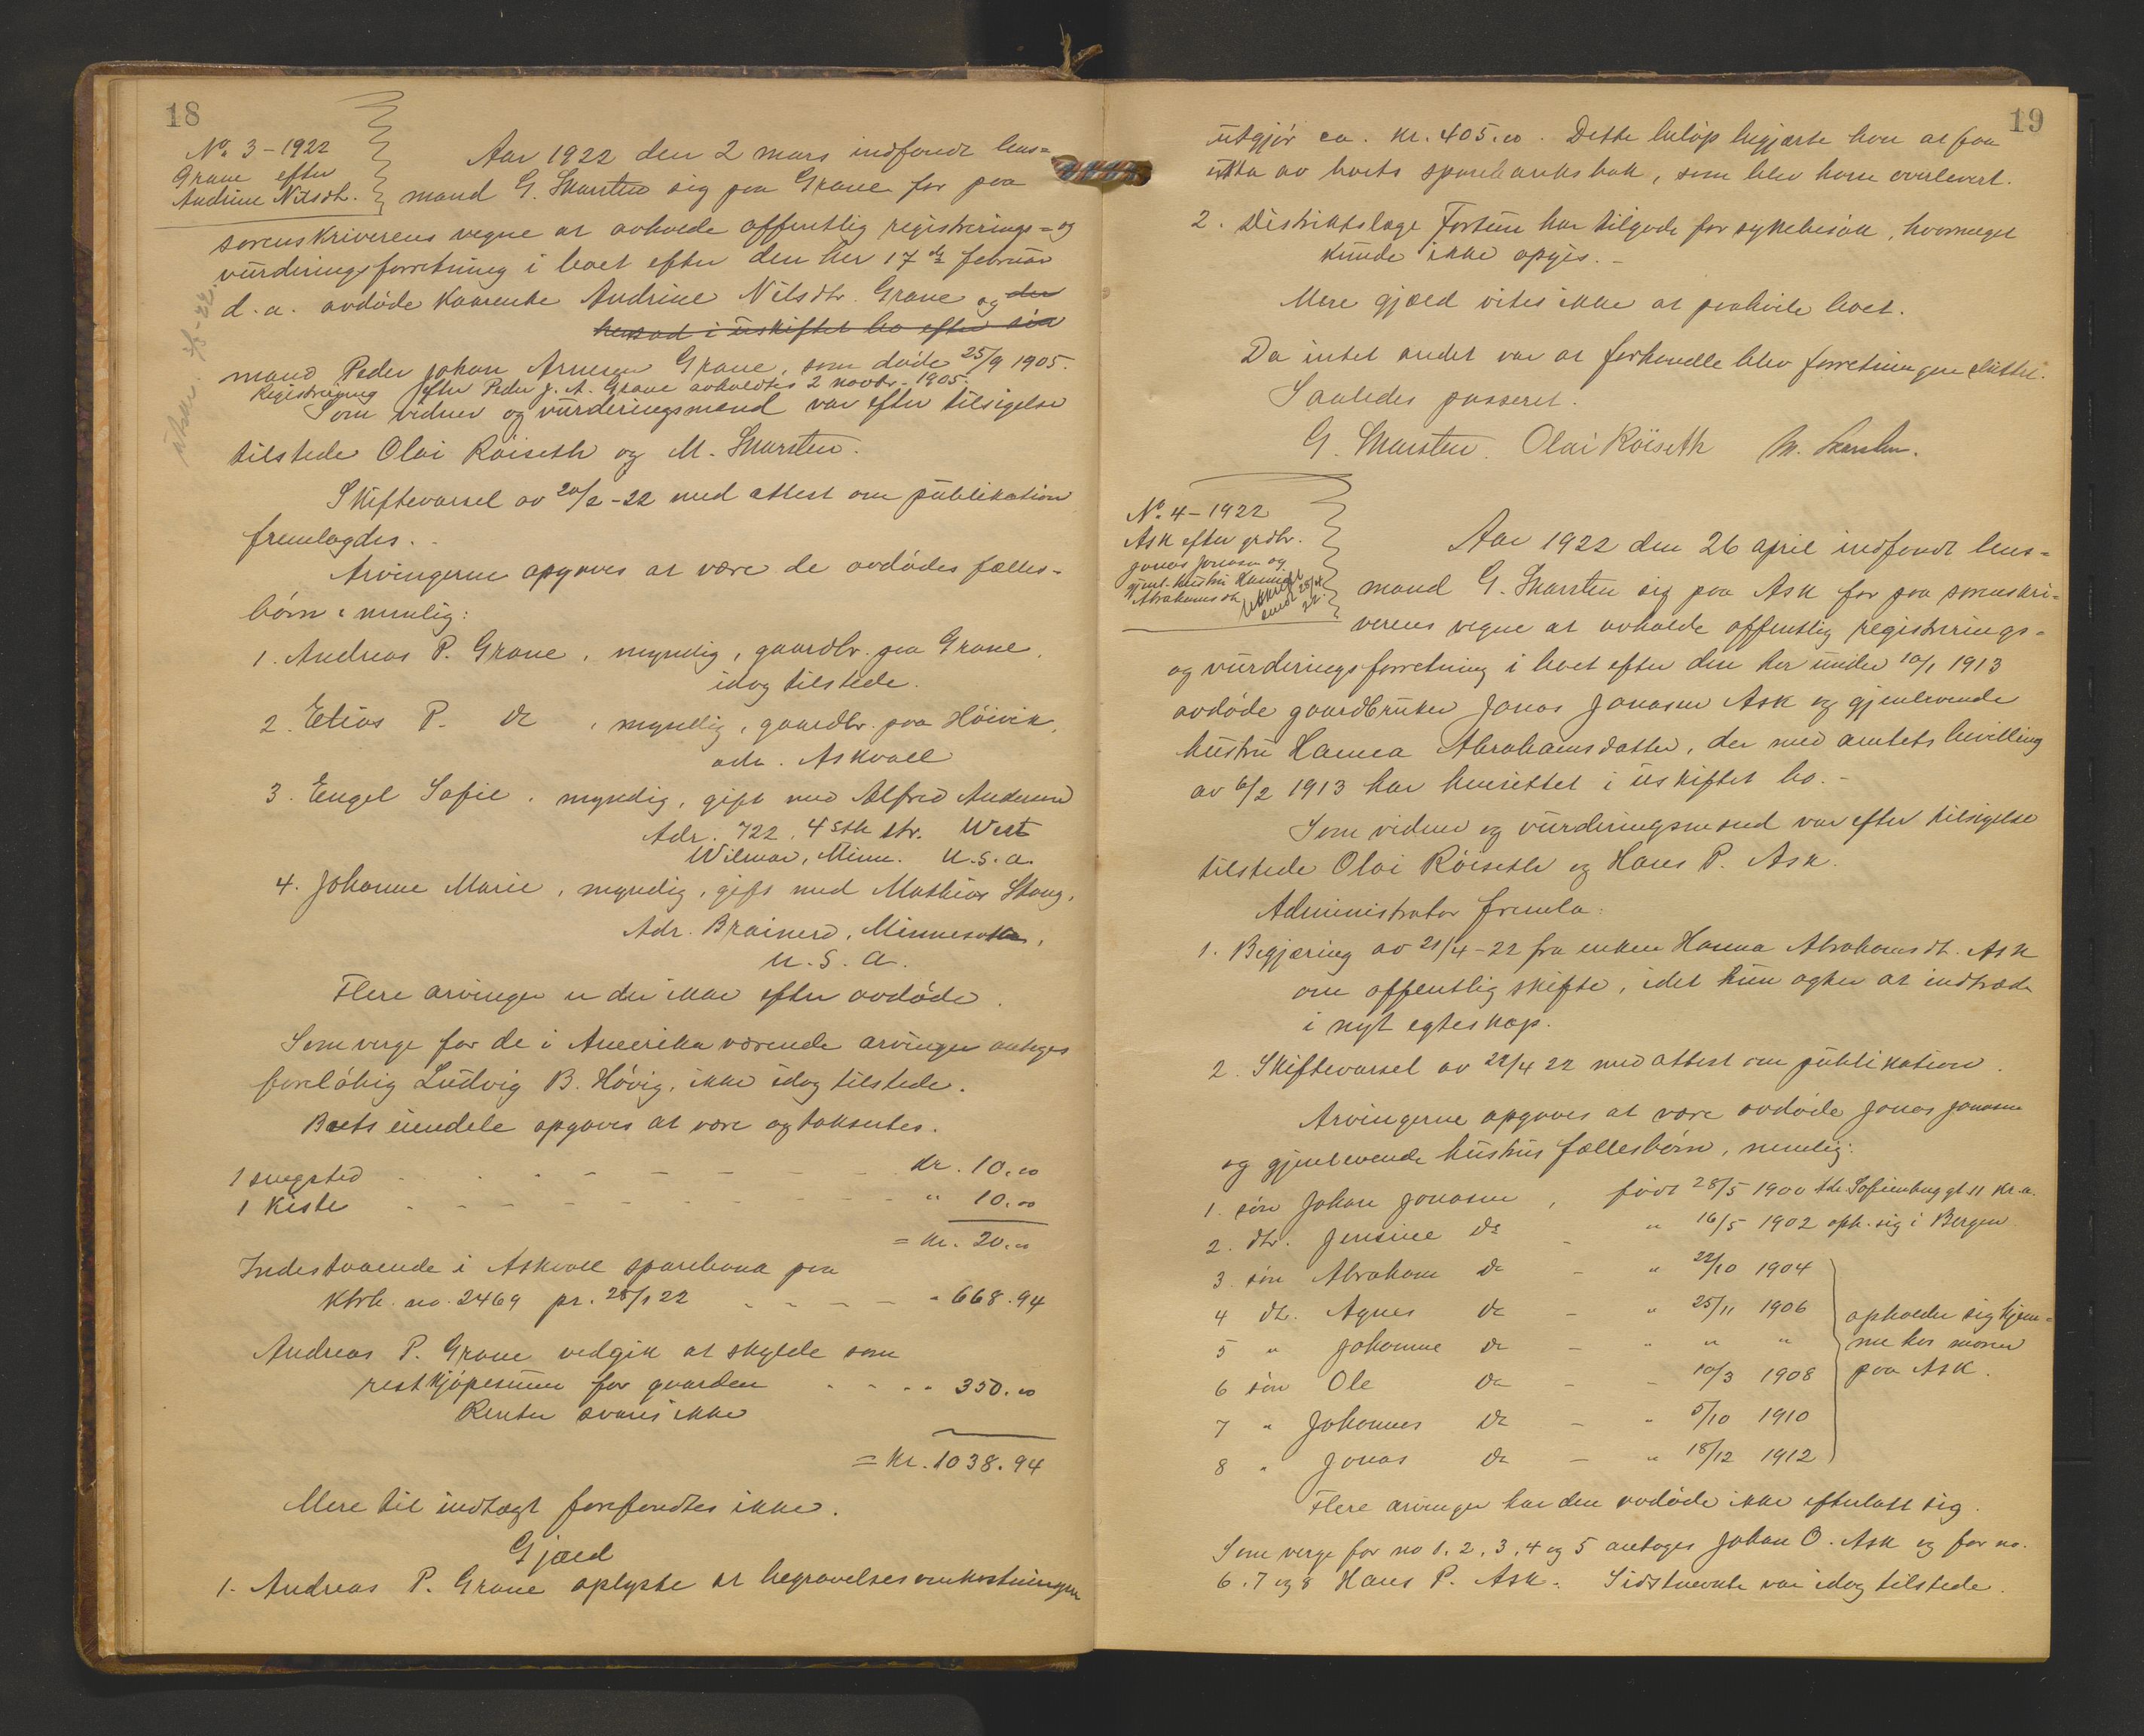 18
No. 3 - 1922
Grane efter
Andrine Nilsdtr.
Aar 1922 den 2 mars indfandt lens=
mand G. Skarsten sig paa Grane for paa
sorenskriverens vegne at avholde offentlig registrerings= og
vurderingsforretning i boet efter den her 17de februar
d. a. avdöde kaarenke Andrine Nilsdtr. Grane og den
hensad i uskiftet bo efter sin
mand Peder Johan Arnesen Grane, som döde 25/9 1905.
Registrering efter Peder J. A. Grane avholdtes 2 novbr. 1905.
Som vidner og vurderingsmænd var efter tilsigelse
tilstede Olai Röiseth og M. Skarsten.
Skiftevarsel av 20/2 - 22 med attest om publikation
fremlagdes. -
Arvingerne opgaves at være de avdödes fælles-
börn: nemlig:
1. Andreas P. Grane, myndig, gaardbr. paa Grane,
idag tilstede.
2. Elias P. do , myndig, gaardbr. paa Höivik,
adr. Askvoll
3. Engel Sofie, myndig, gift med Alfred Andersen
Adr. 722. 45th str. West
Wilmar, Minn. U.S.A.
4. Johanne Marie, myndig, gift med Mathias Stang,
Adr. Brainerd, Minnesota,
U.S.A.
Flere arvinger er der ikke efter avdöde.
Som verge for de i Amerika værende arvinger antages
forelöbig Ludvig B. Hövig, ikke idag tilstede.
Boets eiendele opgaves at være og taksertes.
1 sengsted - - - - - - Kr. 10.00
1 kiste - - - - - - - " 10.00
= Kr. 20.00
Indestaaende i Askvoll sparebank paa
Ktrb. no. 2469 pr. 28/1 22 - - - - " 668.94
Andreas P. Grane vedgik at skylde som
restkjöpesum for gaarden - - - " 350.00
Renter svares ikke
= Kr. 1038.94
Mere til indtægt forefandtes ikke.
Gjæld
1. Andreas P. Grane oplyste at begravelsesomkostningen
19
utgjör ca. kr. 405.00. Dette belöp begjærte han at faa
utta av boets sparebanksbok, som blev ham overlevert.
2. Distriktslæge Fortun har tilgode for sykebesök, hvormeget
kunde ikke opgis. -
Mere gjæld vites ikke at paahvile boet.
Da intet andet var at forhandle blev forretningen sluttet.
Saaledes passeret.
G. Skarsten. Olai Röiseth M. Skarsten.
No. 4 - 1922
Ask efter grdbr.
Jonas Jonasen og
gjenl. hustru Hanna
Abrahamsdtr.
Aar 1922 den 26 april indfandt lens=
mand G. Skarsten sig paa Ask for paa sorenskri=
verens vegne at avholde offentlig registrerings=
og vurderingsforretning i boet efter den her under 10/1 1913
avdöde gaardbruker Jonas Jonasen Ask og gjenlevende
hustru Hanna Abrahamsdatter, der med amtets bevilling
av 6/2 1913 har hensittet i uskiftet bo. -
Som vidner og vurderingsmænd var efter tilsigelse
tilstede Olai Röiseth og Hans P. Ask.
Administrator fremla:
1. Begjæring av 21/4 - 22 fra enken Hanna Abrahamsdt. Ask
om offentlig skifte, idet hun agter at indtræde
i nyt egteskap.
2. Skiftevarsel av 22/4 22 med attest om publikation.
Arvingerne opgaves at være avdöde Jonas Jonasen
og gjenlevende hustrus fællesbörn, nemlig:
1. sön Johan Jonasen, födt 28/5 1900 adr. Sofienberggt. 11 Kr.a.
2. dtr. Jensine do - " 16/5 1902 oph. sig i Bergen
3. sön Abraham do - " 22/10 1904
4 dtr. Agnes do - " 25/11 1906
5 " Johanne do - " " "
6 sön Ole do - - 10/3 1908
7 " Johannes do - " 5/10 1910
8 " Jonas do - " 18/12 1912
opholder sig hjem=
me hos moren
paa Ask.
Flere arvinger har den avdöde ikke efterlatt sig.
Som verge for no 1, 2, 3, 4 og 5 antages Johan O. Ask og for no.
6, 7 og 8 Hans P. Ask. Sidstnevnte var idag tilstede.